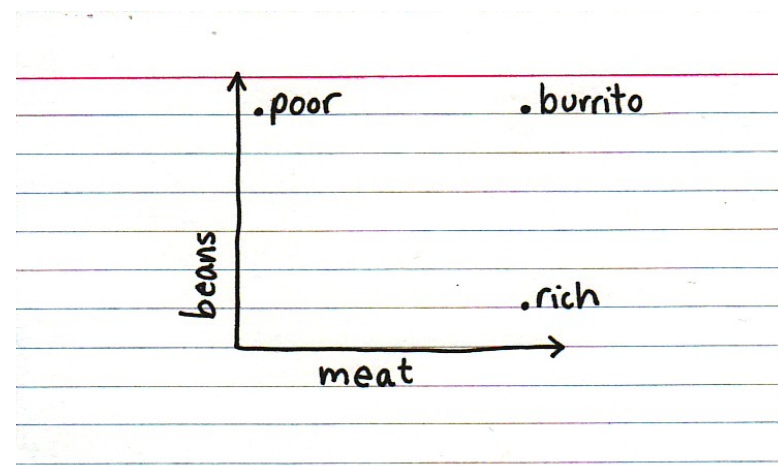 poor
burrito
beans
rich
meat